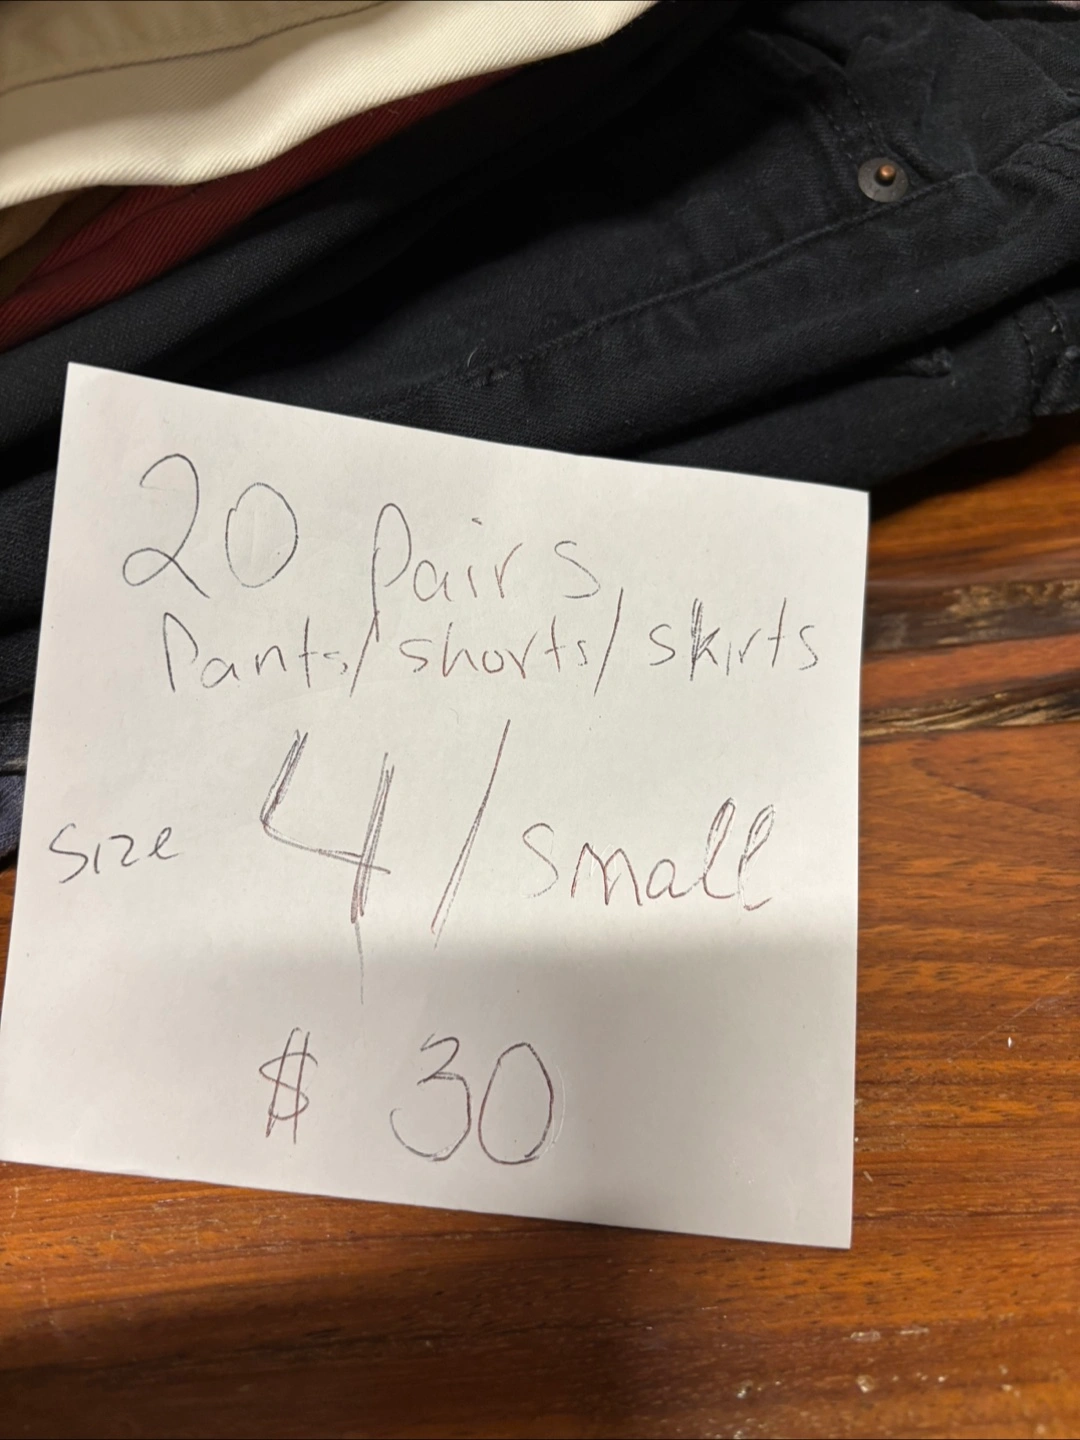 20 pairs
Pants/shorts/skirts
size 4/small
$ 30